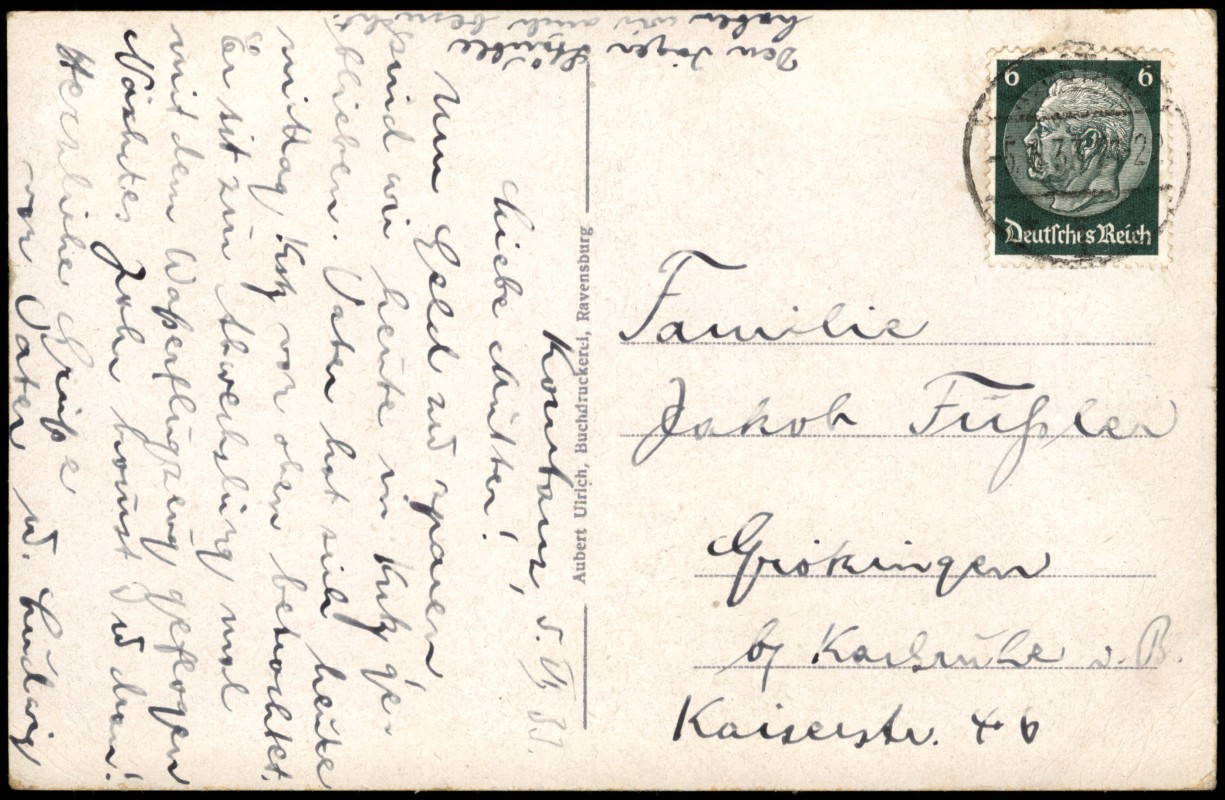 Konstanz, 5. VI. 33.
Liebe Mutter!
Um Geld zu sparen
sind wir heute in Kstz ge-
blieben. Vater hat sich heute
mittag Kstz von oben betrachtet.
Er ist zur Abwechslung mal
mit dem Waßerflugzeug geflogen
Nächstes Jahr kommst Du dran!
Herzliche Grüße
von Vater u. Ludwig
Den Jäger Stäble
haben wir auch besucht.
Aubert Ulrich, Buchdruckerei, Ravensburg
6 6
Deutsches Reich
Familie
Jakob Füßler
Grötzingen
b/ Karlsruhe i. B.
Kaiserstr. 46